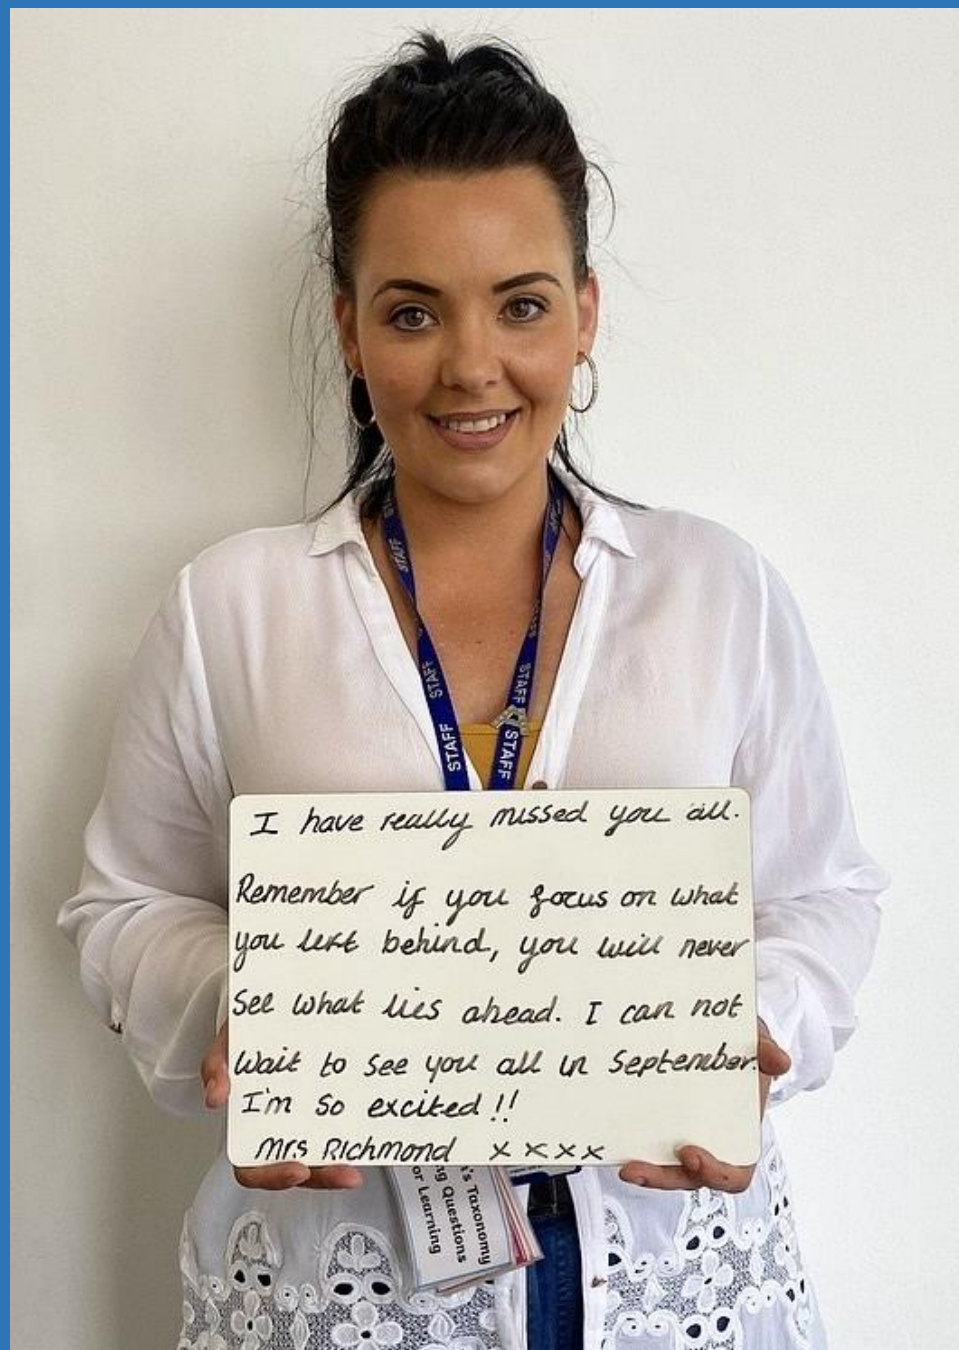 STAFF
STAFF
STAFF
STAFF
STAFF
I have really missed you all.
Remember if you focus on what
you left behind, you will never
see what lies ahead. I can not
wait to see you all in September.
I'm so excited!!
Mrs Richmond xxxx
's Taxonomy
ng Questions
or Learning